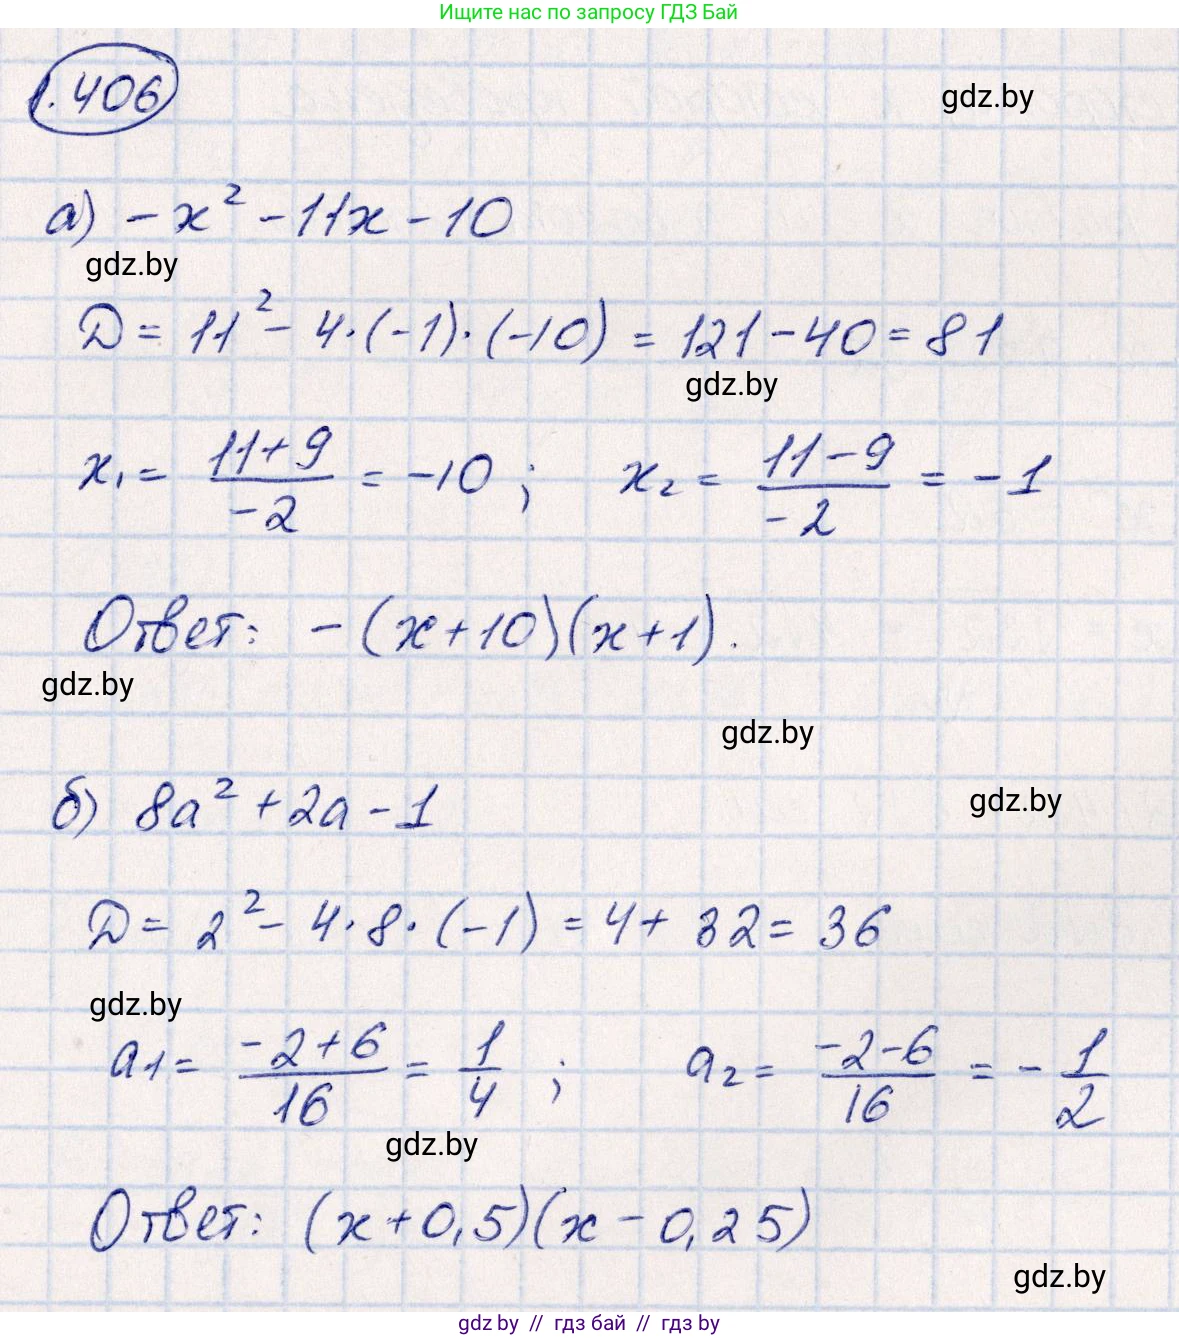 Ищите нас по запросу ГДЗ Бай
1.406
gdz.by
а) -x² - 11x - 10
gdz.by
D = 11² - 4·(-1)·(-10) = 121 - 40 = 81
gdz.by
x₁ = (11+9)/(-2) = -10 ; x₂ = (11-9)/(-2) = -1
Ответ: -(x+10)(x+1).
gdz.by
gdz.by
б) 8a² + 2a - 1
gdz.by
D = 2² - 4·8·(-1) = 4 + 32 = 36
gdz.by
a₁ = (-2+6)/16 = 1/4 ; a₂ = (-2-6)/16 = -1/2
gdz.by
Ответ: (x+0,5)(x-0,25)
gdz.by
gdz by // гдз бай // гдз by